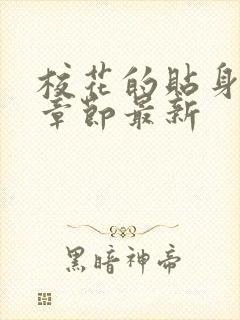 校花的贴身
章节最新
黑暗神帝